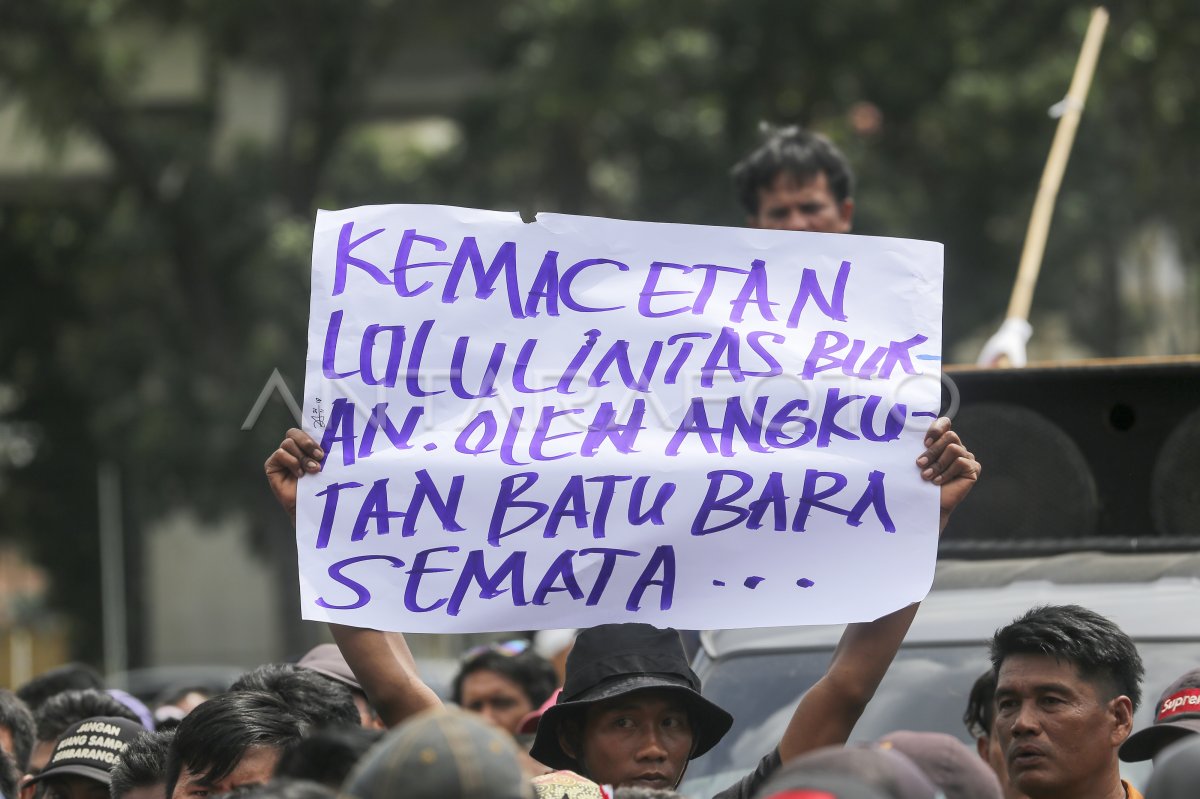 KEMACETAN
LOLULINTAS BUK-
AN. OLEH ANGKU-
TAN BATU BARA
SEMATA ...
ANTARAFOTO
JANGAN
Supreme